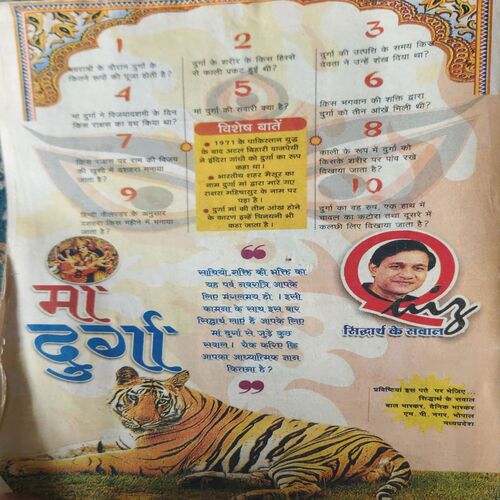 1
नवरात्रों के दौरान दुर्गा के
कितने रूपों की पूजा होती है?
2
दुर्गा के शरीर के किस हिस्से
से काली प्रकट हुई थी?
3
दुर्गा की उत्पत्ति के समय किस
देवता ने उन्हें शंख दिया था?
4
मां दुर्गा ने विजयादशमी के दिन
किस राक्षस का वध किया था?
5
मां दुर्गा की सवारी क्या है?
6
किस भगवान की शक्ति द्वारा
दुर्गा को तीन आंखें मिली?
7
किस राक्षस पर राम की विजय
की खुशी में दशहरा मनाया
जाता है?
विशेष बातें
• 1971 के पाकिस्तान युद्ध
के बाद अटल बिहारी वाजपेयी
ने इंदिरा गांधी को दुर्गा का रूप
कहा था।
• भारतीय शहर मैसूर का
नाम दुर्गा मां द्वारा मारे गए
राक्षस महिषासुर के नाम पर
पड़ा है।
• दुर्गा मां की तीन आंख होने
के कारण इन्हें त्रिनयनी भी
कहा जाता है।
8
काली के रूप में दुर्गा को
किसके शरीर पर पांव रखे
दिखाया जाता है?
9
हिन्दी कैलेण्डर के अनुसार
दशहरा किस महीने में मनाया
जाता है?
10
दुर्गा का वह रूप, एक हाथ में
चावल का कटोरा तथा दूसरे में
कलछी लिए दिखाया जाता है?
मां
दुर्गा
साथियो, शक्ति की भक्ति का
यह पर्व नवरात्रि आपके
लिए मंगलमय हो। इसी
कामना के साथ इस बार
सिद्धार्थ लाएं हैं आपके लिए
मां दुर्गा से जुड़े कुछ
सवाल। चेक करिए कि
आपका आध्यात्मिक ज्ञान
कितना है?
Quiz
सिद्धार्थ के सवाल
प्रविष्टियां इस पते पर भेजिए...
सिद्धार्थ के सवाल
बाल भास्कर, दैनिक भास्कर
एम. पी. नगर, भोपाल
मध्यप्रदेश